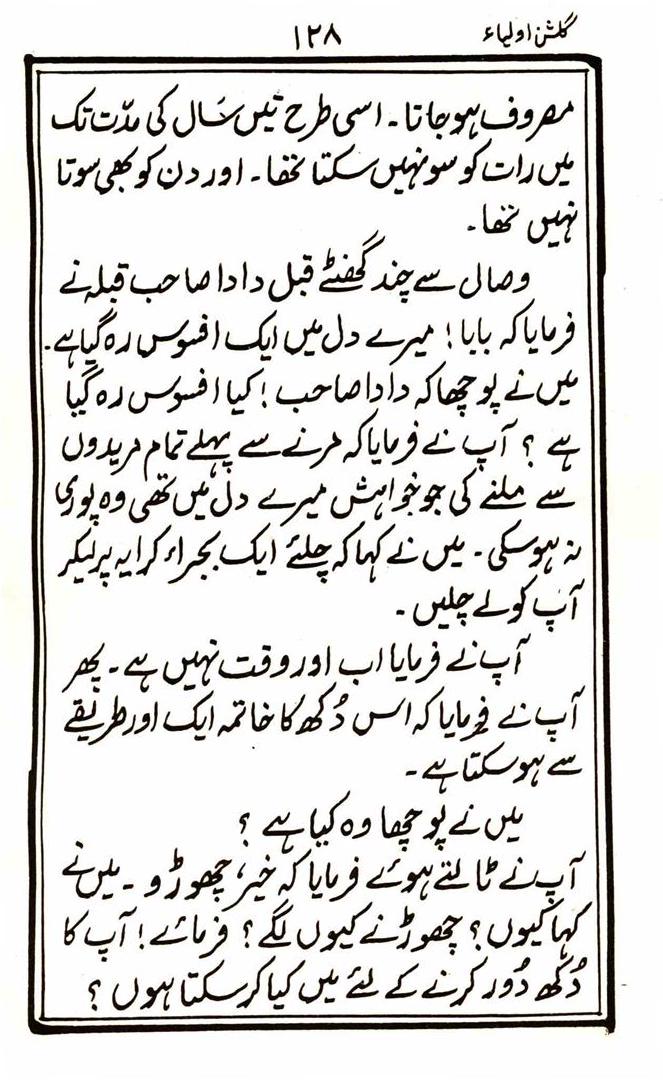 گلشن اولیاء
۱۲۸
مصروف ہو جاتا۔ اسی طرح تیس سَال کی مدّت تک
میں رات کو سو نہیں سکتا تھا۔ اور دن کو بھی سوتا
نہیں تھا۔
وصال سے چند گھنٹے قبل دادا صاحب قبلہ نے
فرمایا کہ بابا! میرے دل میں ایک افسوس رہ گیا ہے۔
میں نے پوچھا کہ دادا صاحب! کیا افسوس رہ گیا
ہے؟ آپ نے فرمایا کہ مرنے سے پہلے تمام مریدوں
سے ملنے کی جو خواہش میرے دل میں تھی وہ پوری
نہ ہو سکی۔ میں نے کہا کہ چلئے ایک بجراء کرایہ پر لیکر
آپ کو لے چلیں۔
آپ نے فرمایا اب اور وقت نہیں ہے۔ پھر
آپ نے فرمایا کہ اس دُکھ کا خاتمہ ایک اور طریقے
سے ہو سکتا ہے۔
میں نے پوچھا وہ کیا ہے؟
آپ نے ٹالتے ہوئے فرمایا کہ خیر، چھوڑو۔ میں نے
کہا کیوں؟ چھوڑنے کیوں لگے؟ فرمائے! آپ کا
دُکھ دُور کرنے کے لئے میں کیا کر سکتا ہوں؟